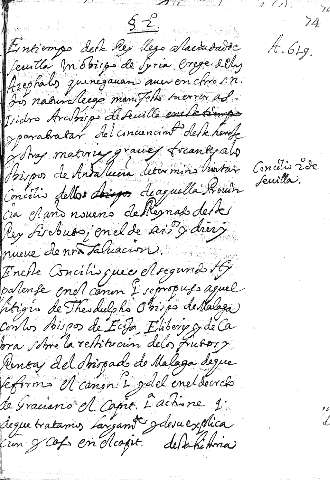 § 2º
74
En tiempo deste Rey llego a la ciudad de
Sevilla Un obispo de Syria erege de los
Azephalos que negavan aver en Christo s.n.
dos naturalezas manifesto su error a S.
Isidro Arçobispo de Sevilla en este tiempo
y para tratar del convencimto deste herege
y otras materias graves tocantes a los
obispos de Andalucia determino juntar
Concilio dellos obispos de aquella Provin
cia el año noveno de Reynado deste
Rey Sisebuto, en el de seisos y diez y
nueve de nra salvacion.
A. 619.
Concilio 2º de
Sevilla.
En este Concilio que es el segundo His
palense en el canon 1º se propuso aquel
litigio de Theodulpho Obispo de Malaga
con los obispos de Ecija, Elibery y de Ca
bra, sobre la restitucion de los fructos y
Rentas del obispado de Malaga de que
se firmo el canon 1º y del en el decreto
de Graciano el Capit. 1º actione 1.
de que tratamos largamte y de su explica
cion y caso en el capit. desta historia